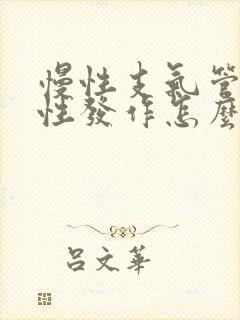 慢性支氣管
性發作怎麼
吕文華